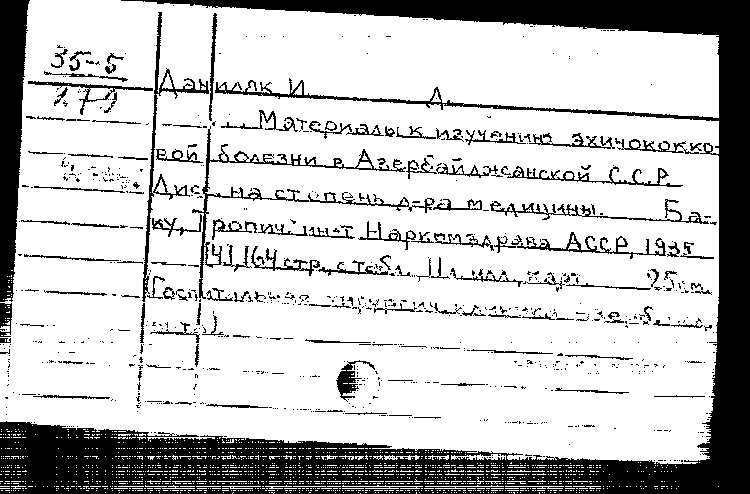 35-5
279
Даниляк, И. Д.
... Материалы к изучению эхинококко-
вой болезни в Азербайджанской С.С.Р.
Дисс. на степень д-ра медицины. Ба-
ку, Тропич. ин-т Наркомздрава АССР, 1935
[4], 164 стр., с табл., 11 л. илл., карт. 25 см.
(Госпитальная хирургич. клиника